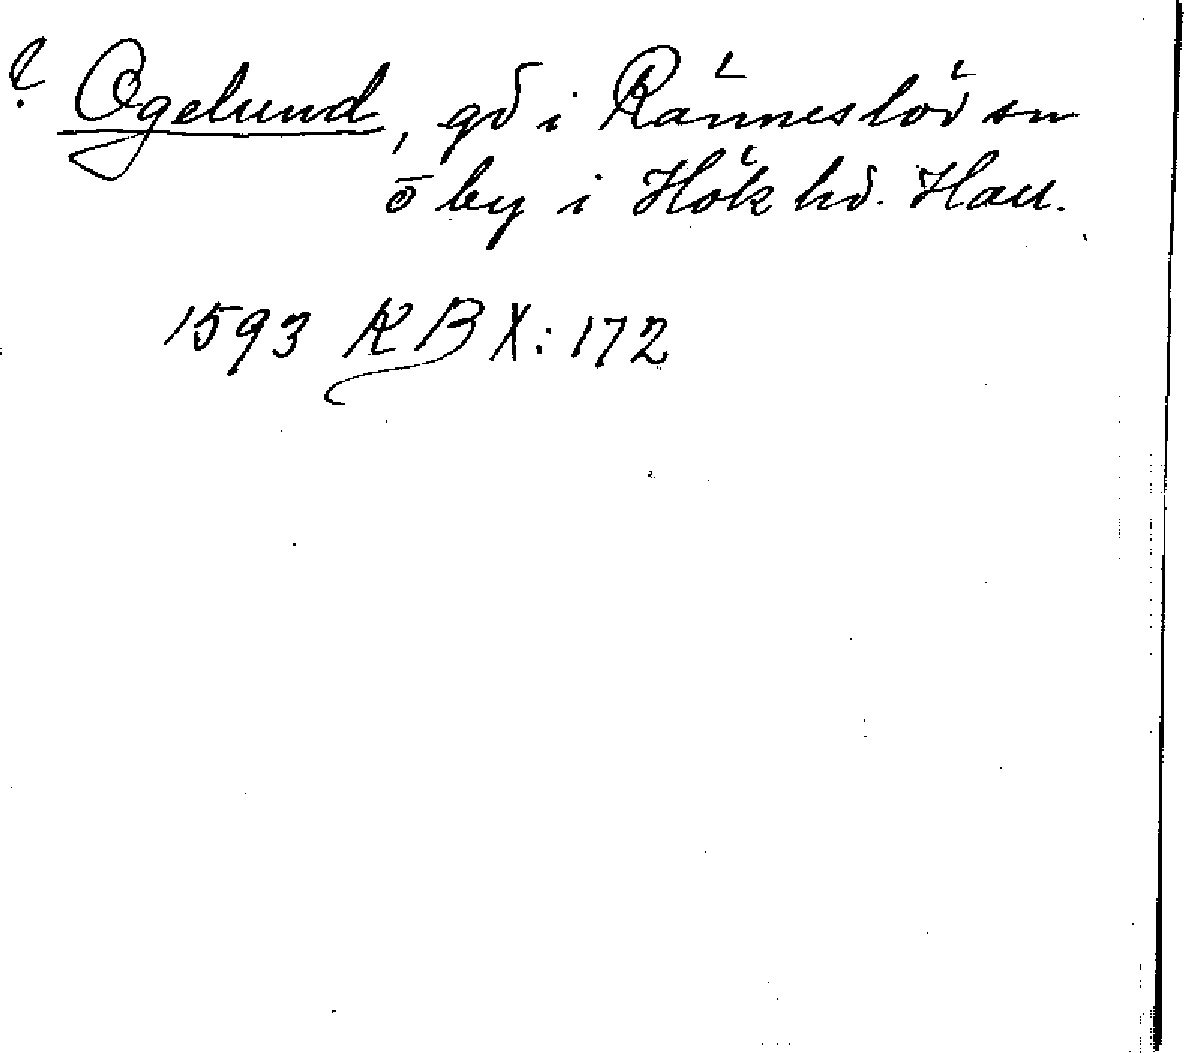 ? Ogelund, gd i Ränneslöv sn
o by i Hök hd. Hall.
1593 KB X: 172